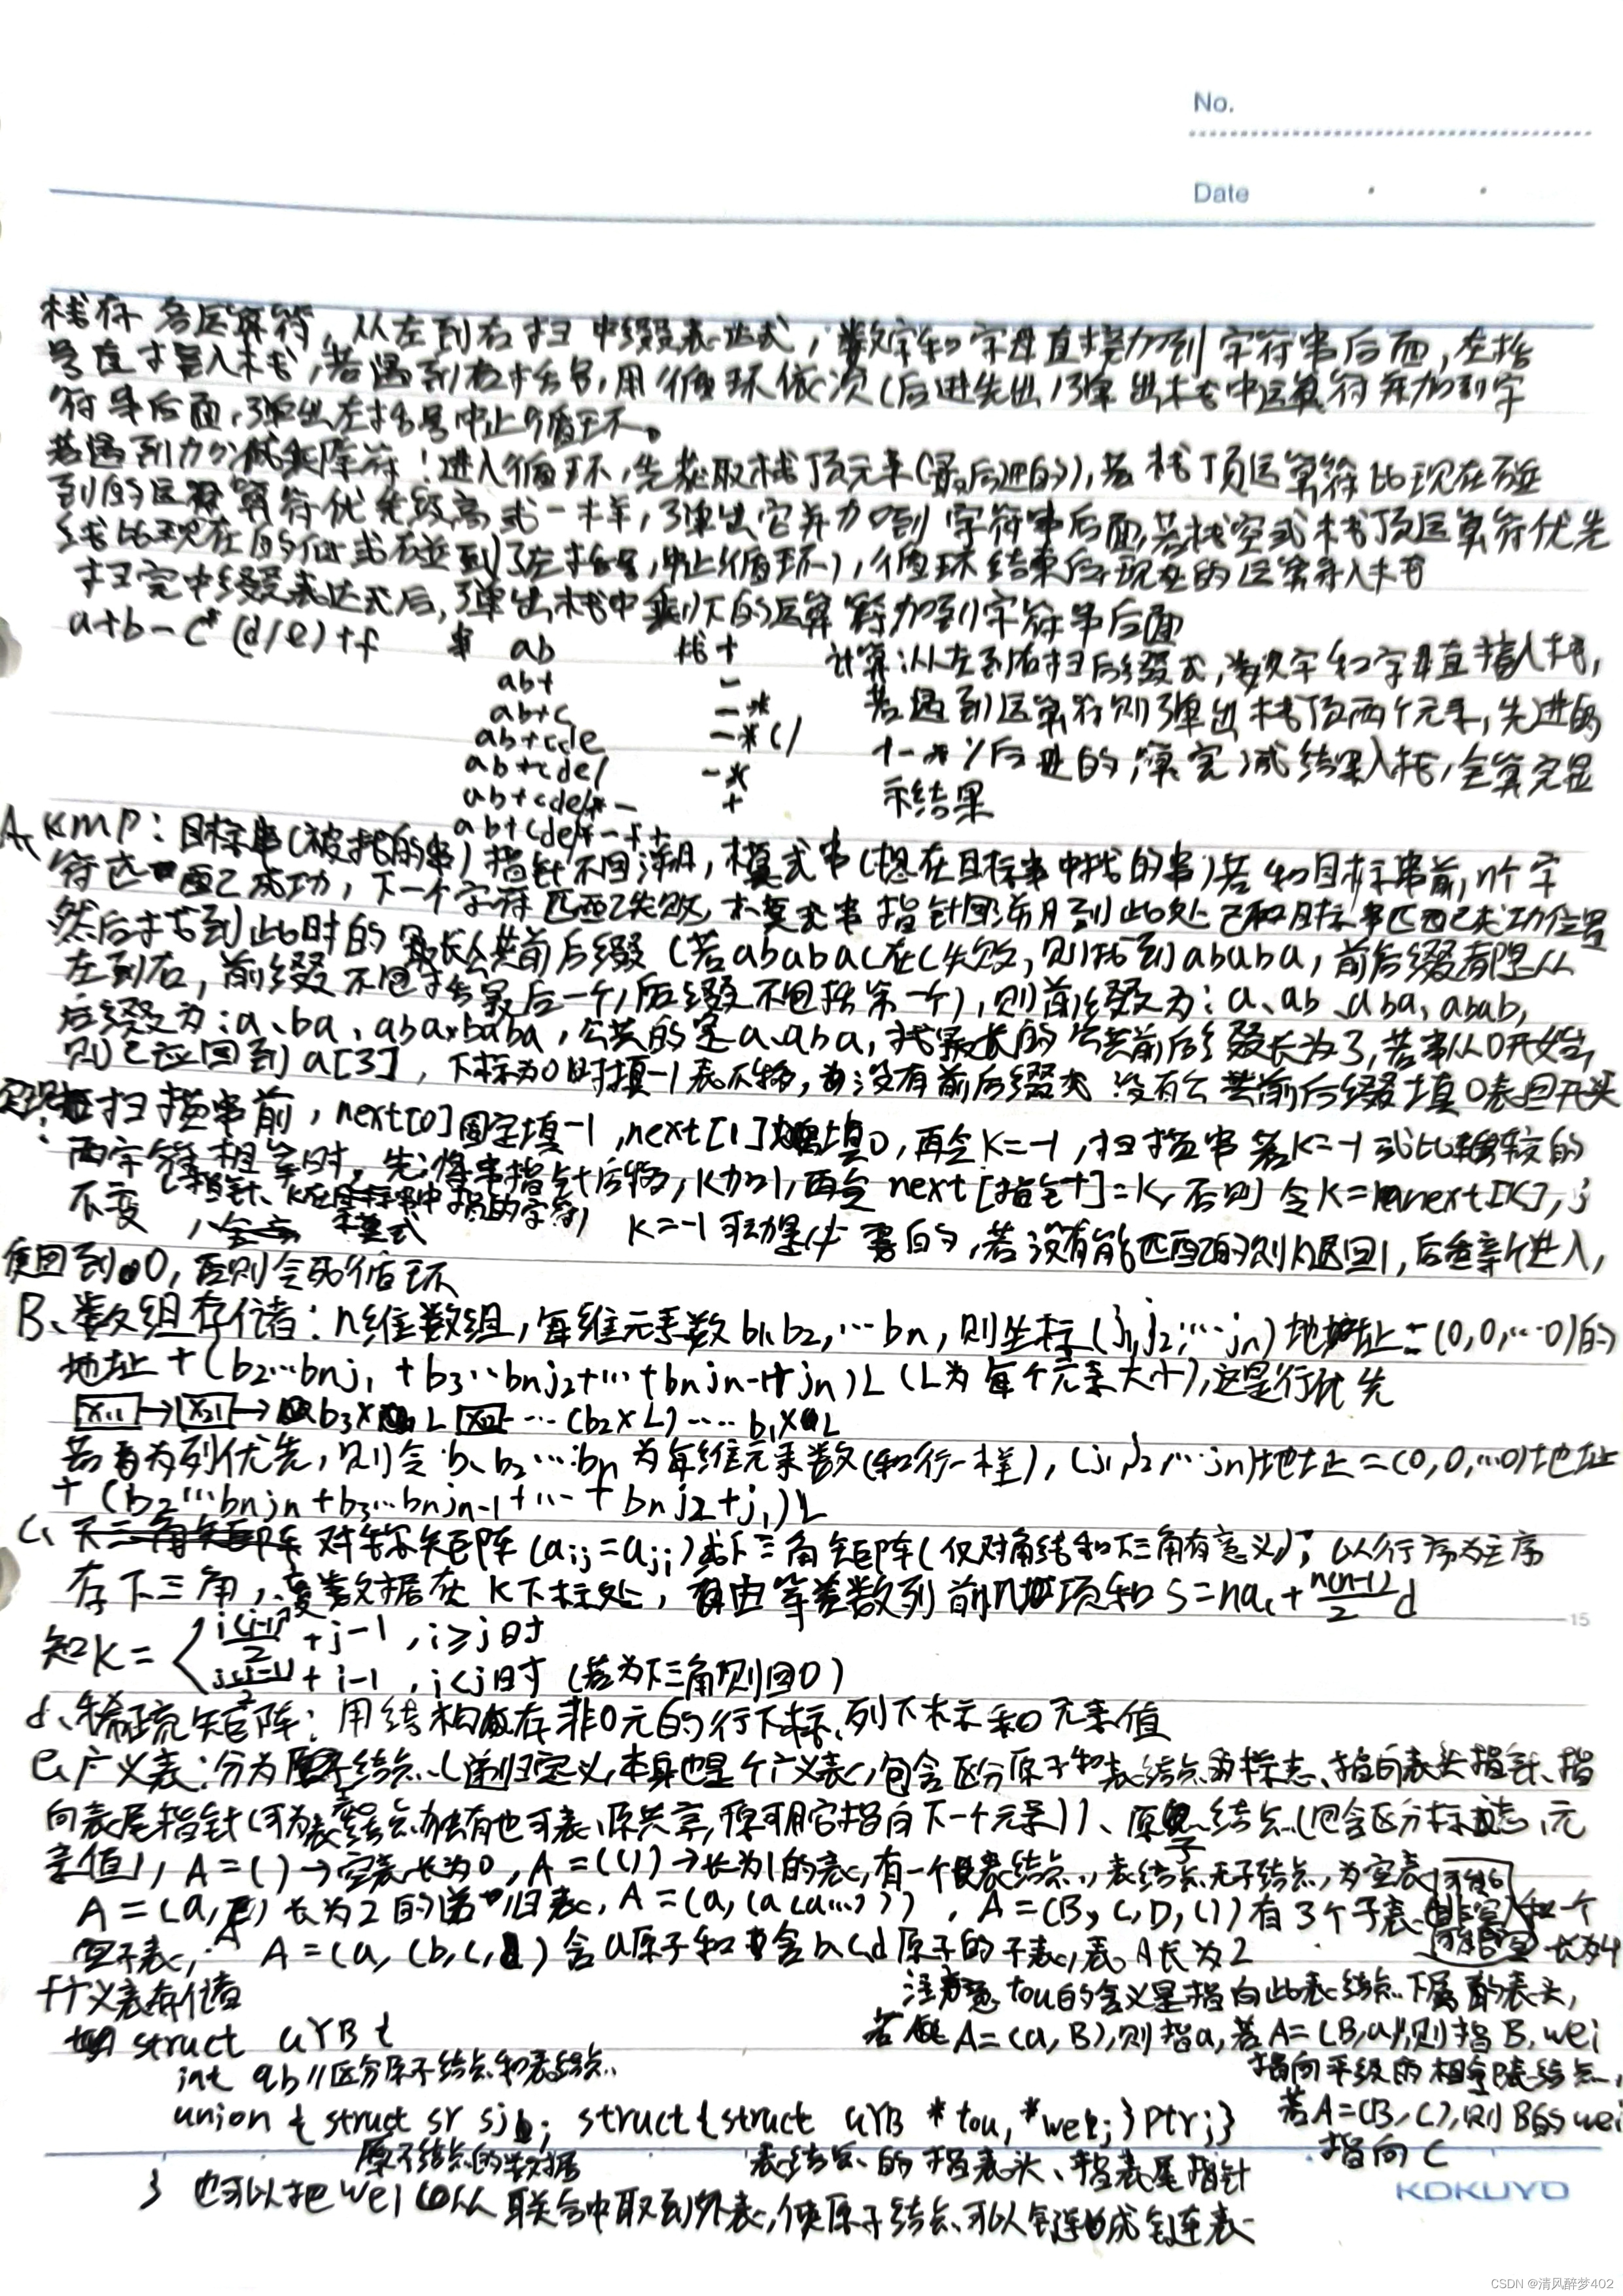 No.
Date
栈存各运算符，从左到右扫中缀表达式，数字和字母直接加到字符串后面，左括
号直接入栈，若遇到右括号，用循环依次（后进先出）弹出栈中运算符并加到字
符串后面，弹出左括号中止循环。
若遇到加减乘除符！进入循环，先获取栈顶元素（最后进的），若栈顶运算符比现在碰
到的运算符优先级高或一样，弹出它并加到字符串后面，若栈空或栈顶运算符优先
级比现在的低或碰到了左括号，中止循环），循环结束后，现在的运算符入栈
扫完中缀表达式后，弹出栈中剩下的运算符加到字符串后面
a+b-c*(d/e)+f 串 ab 栈+
ab+ -
ab+c -*
ab+cde -*(/
ab+cde/ -*
ab+cde/*- +
ab+cde/*-f+
计算：从左到右扫后缀式，数字和字母直接入栈，
若遇到运算符则弹出栈顶两个元素，先进的
+-*/后进的，算完成结果入栈，全算完显
示结果
A、KMP：目标串（被找的串）指针不回溯，模式串（想在目标串中找的串）若和目标串前n个字
符匹配成功，下一个字符匹配失败，模式串指针回溯到此处已和目标串匹配成功位置
然后找到此时的最长公共前后缀（若ababac在c失败，则找到ababa，前后缀都是从
左到右，前缀不包括最后一个，后缀不包括第一个），则前缀为：a、ab、aba、abab，
后缀为：a、ba、aba、baba，公共的是a、aba，找最长的公共前后缀长为3，若串从0开始，
则已应回到a[3]，下标为0时填-1表不移，当没有前后缀或没有公共前后缀填0表回开头
实现：扫描串前，next[0]固定填-1，next[1]填0，再令K=-1，扫描串若K=-1或比较的
两字符相等时，先将串指针后移，K加1，再令next[指针]=K，否则令K=next[K]，j
（指针、K在模式串中指的字符）
不变，K=-1 是必要的，若没有能匹配的则K退回1，后重新进入，
便回到0，否则会死循环
B、数组存储：n维数组，每维元素数b1、b2，…bn，则坐标（j1,j2,…jn）地址=(0,0,…0)的
地址+(b2…bnj1+b3…bnj2+…+bnjn-1+jn)L（L为每个元素大小），这是行优先
若为列优先，则令b1、b2…bn为每维元素数（和行一样），(j1,j2,…jn)地址=(0,0,…0)地址
+(b2…bnjn+b3…bnjn-1+…+bnj2+j1)L
C、对称矩阵（aij=aji）或下三角矩阵（仅对角线和下三角有意义），以行序为主序
存下三角，数据在K下标处，由等差数列前n项和S=na1+n(n-1)/2 d
知K= i(i-1)/2+j-1，i≥j时
j(j-1)/2+i-1，i<j时（若为下三角则回0）
15
d、稀疏矩阵：用结构体存非0元的行下标、列下标和元素值
e、广义表：分为表结点（递归定义，本身也是个广义表，包含区分原子和表结点的标志、指向表头指针、指
向表尾指针（可为表结点独有也可表、原共享，原可用它指向下一个元素））、原子结点（包含区分标志、元
素值），A=()→空表长为0，A=(())→长为1的表，有一个表结点，表结点无子结点，为空表
A=(a,A)长为2的递归表，A=(a,(a(a…)))，A=(B,C,D,())有3个子表和一个
空子表，长为4
A=(a,(b,c,d)含a原子和含b,c,d原子的子表，表A长为2
f广义表存储
struct GYB{
int qb//区分原子结点和表结点
union{struct sr sj; struct{struct GYB *tou,*wei;}ptr;}
原子结点的数据 表结点的指表头、指表尾指针
}也可以把wei从联合中取到外表，使原子结点可以链成链表
注意tou的含义是指向此表结点下属的表头，
若A=(a,B)，则指a，若A=(B,a)，则指B，wei
指向平级的相邻表结点，
若A=(B,C)，则B的wei
指向C
KOKUYO
CSDN @清风醉梦402